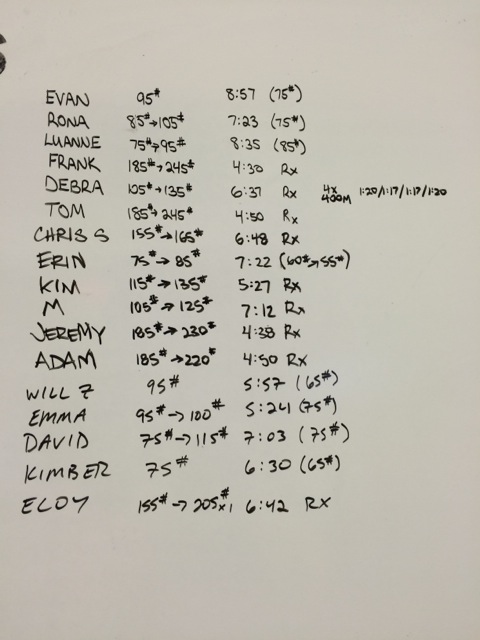 EVAN 95# 8:57 (75#)
RONA 85#→105# 7:23 (75#)
LUANNE 75#→95# 8:35 (85#)
FRANK 185#→245# 4:30 Rx
DEBRA 105#→135# 6:37 Rx 4x 400M 1:20/1:17/1:17/1:20
TOM 185#→245# 4:50 Rx
CHRIS S 155#→165# 6:48 Rx
ERIN 75#→85# 7:22 (60#→55#)
KIM 115#→135# 5:27 Rx
M 105#→125# 7:12 Rx
JEREMY 185#→230# 4:38 Rx
ADAM 185#→220# 4:50 Rx
WILL Z 95# 5:57 (65#)
EMMA 95#→100# 5:24 (75#)
DAVID 75#→115# 7:03 (75#)
KIMBER 75# 6:30 (65#)
ELOY 155#→205#x1 6:42 RX